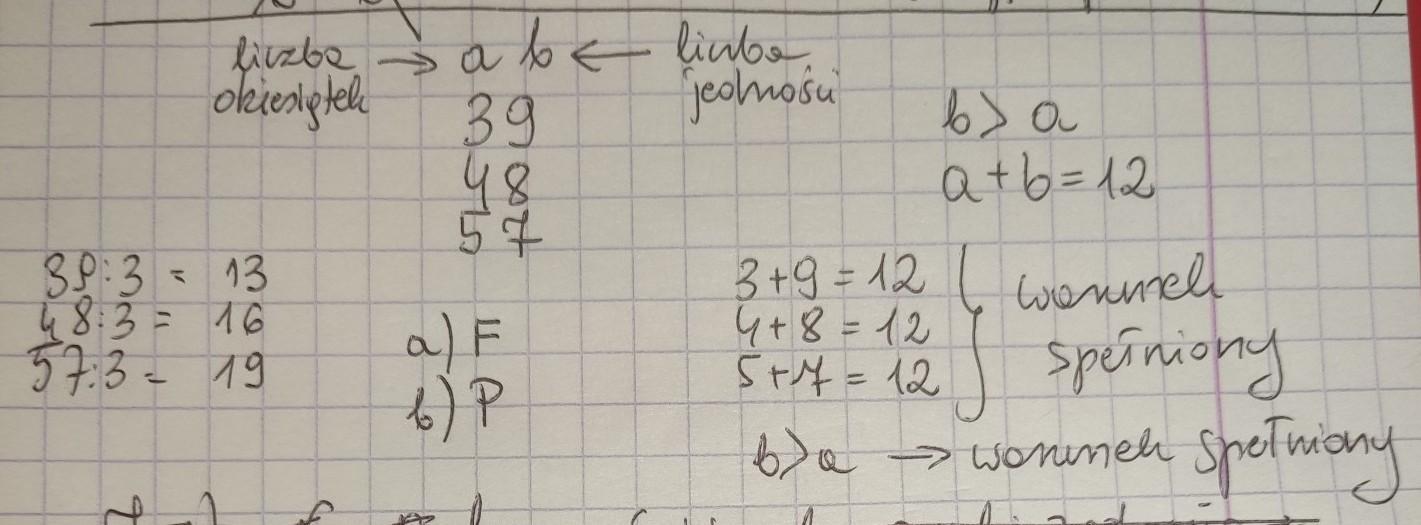 liczba → a b ← liczba
dziesiątek jedności
39
48
57
b > a
a + b = 12
39:3 = 13
48:3 = 16
57:3 = 19
a) F
b) P
3 + 9 = 12
4 + 8 = 12
5 + 7 = 12
warunek
spełniony
b > a → warunek spełniony